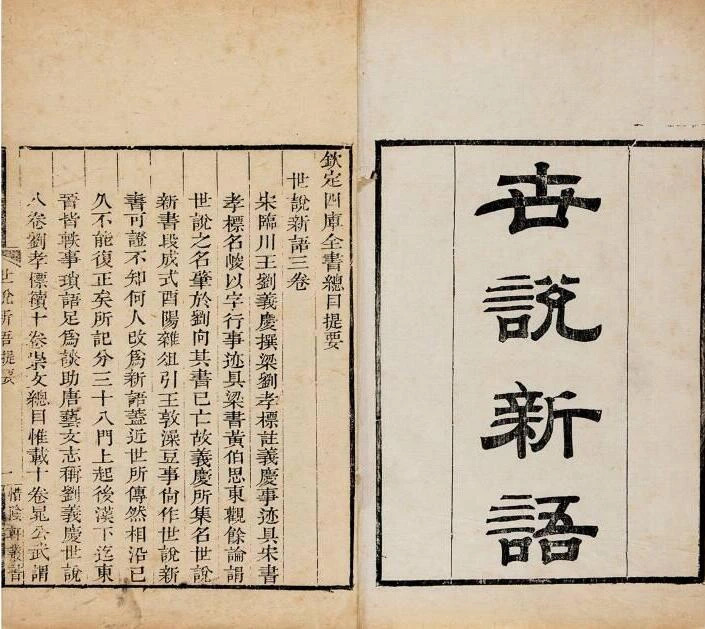 世說新語
欽定四庫全書總目提要
世說新語三卷
宋臨川王劉義慶撰梁劉孝標註義慶事迹具宋書
孝標名峻以字行事迹具梁書黃伯思東觀餘論謂
世說之名肇於劉向其書已亡故義慶所集名世說
新書段成式酉陽雜俎引王敦澡豆事尙作世說新
書可證不知何人改爲新語蓋近世所傳然相沿已
久不能復正矣所記分三十八門上起後漢下迄東
晉皆軼事瑣語足爲談助唐藝文志稱劉義慶世說
八卷劉孝標續十卷崇文總目惟載十卷晁公武謂
世說新語提要 一 惜陰軒叢書